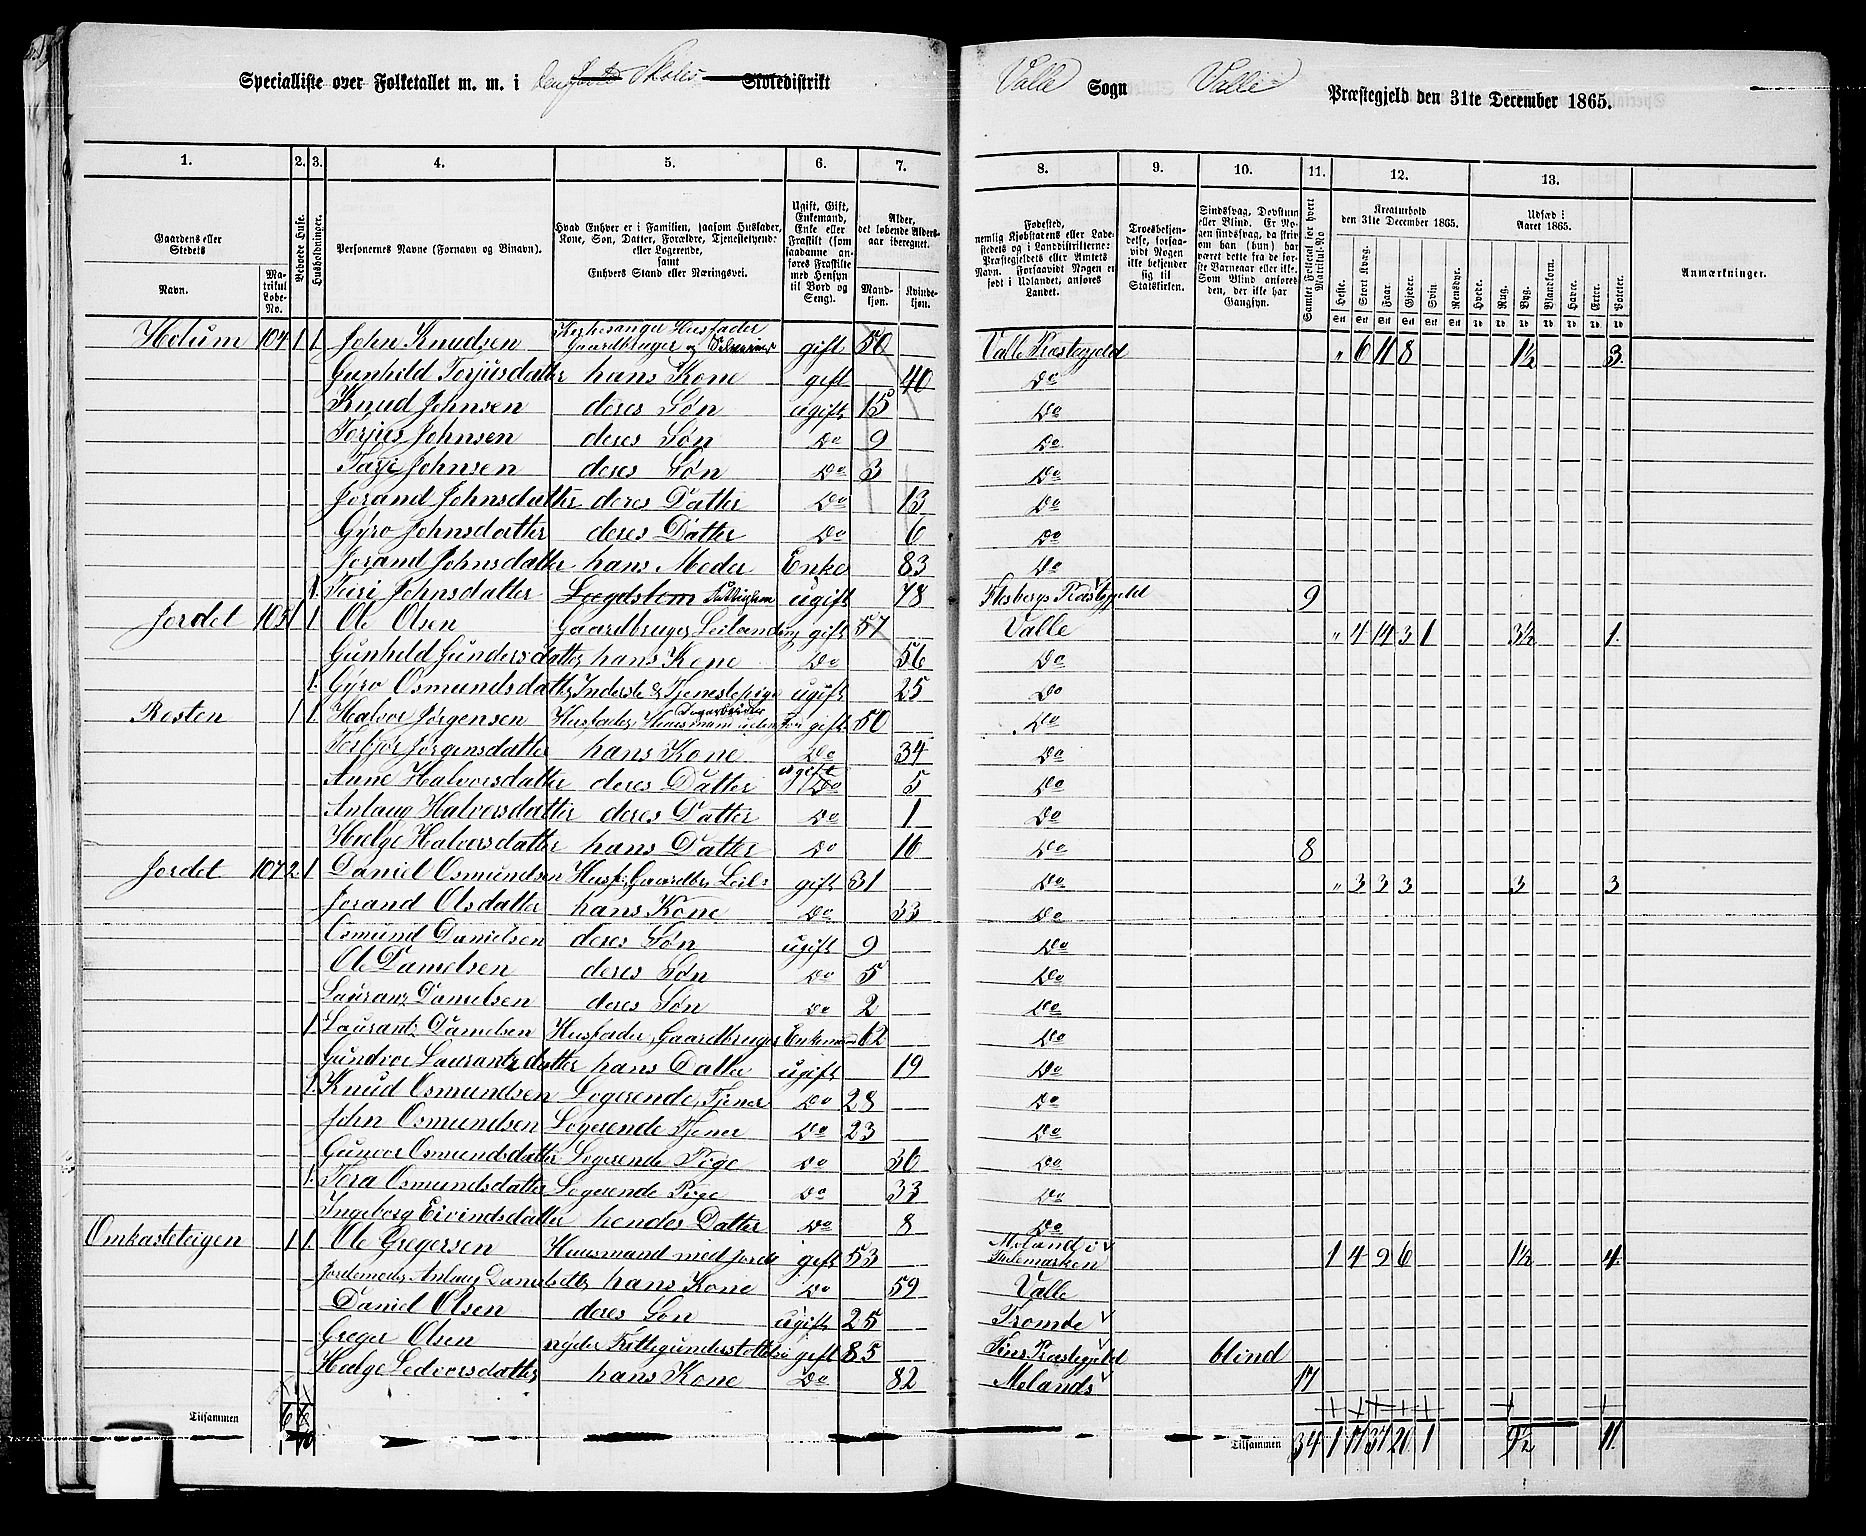 Specialliste over Folketallet m. m. i Skoles Skoledistrikt
Valle Sogn Valle Præstegjeld den 31te December 1865.
1. 2. 3. 4. 5. 6. 7. 8. 9. 10. 11. 12. 13.
Gaardens eller Stedets Navn.
Matrikul Løbe-No.
Beboede Huse.
Husholdninger.
Personernes Navne (Fornavn og Binavn).
Hvad Enhver er i Familien, saasom Husfader, Kone, Søn, Datter, Forældre, Tjenestetyende eller Logerende, samt Enhvers Stand eller Næringsvei.
Ugift, Gift, Enkemand, Enke eller Fraskilt (som saadanne anføres Fraskilte med Hensyn til Bord og Seng).
Alder, det løbende Aldersaar iberegnet.
Mandkjøn. Kvindekjøn.
Fødested, nemlig Kjøbstadens eller Ladestedets og i Landdistrikterne: Præstegjeldets eller Amtets Navn. Forsaavidt Nogen er født i Udlandet, anføres Landet.
Troesbekjendelse, forsaavidt Nogen ikke bekjender sig til Statskirken.
Sindssvag, Døvstum eller Blind. Er Nogen sindssvag, da skrives om han (hun) har været dette fra de første Barneaar eller ikke. Som Blind anføres den, der ikke har Gangsyn.
Samlet Folketal for hvert Matrikul-No
Kreaturhold den 31te December 1865.
Heste. Stort Kvæg. Faar. Gjeder. Svin. Rensdyr.
Udsæd i Aaret 1865.
Hvede. Rug. Byg. Blandkorn. Havre. Erter. Poteter.
Anmærkninger.
Holum 104 1 1 John Knudsen Kirkesanger Husfader Gaardbruger og gift 50 Valle Præstegjeld " 6 11 8 1½ 3
Gunhild Torjusdatter hans Kone gift 40 Do
Knud Johnsen deres Søn ugift 15 Do
Torjus Johnsen deres Søn Do 9 Do
Tarje Johnsen deres Søn Do 3 Do
Jorand Johnsdatter deres Datter Do 13 Do
Gyro Johnsdatter deres Datter Do 6 Do
Jorand Johnsdatter hans Moder Enke 83 Do
1 Turi Johnsdatter Lægdslem ugift 78 Flesbergs Præstegjeld 9
Jordet 105 1 1 Ole Olsen Gaardbruger Leilænding gift 57 Valle " 4 14 3 1 3½ 1
Gunhild Gundersdatter hans Kone Do 56 Do
1 Gyro Osmundsdatter Inderste & Tjenestepige ugift 25 Do
Rosten 1 1 Halvor Jørgensen Husfader, Huusmand uden Jord Dagarbeider gift 50 Do
Torbjør Jørgensdatter hans Kone Do 34 Do
Anne Halvorsdatter deres Datter ugift Do 5 Do
Anlaug Halvorsdatter deres Datter Do 1 Do
Hælge Halvorsdatter hans Datter Do 10 Do 8
Jordet 107 2 1 Daniel Osmundsen Husf: Gaardbr. Leil: gift 31 Do " 3 3 3 3 3
Jorand Olsdatter hans Kone Do 33 Do
Osmund Danielsen deres Søn ugift 9 Do
Ole Danielsen deres Søn Do 5 Do
Laurans Danielsen deres Søn Do 2 Do
1 Laurants Danielsen Husfader, Gaardbruger Enkemand 62 Do
Gundvor Laurantzdatter hans Datter ugift 19 Do
1 Knud Osmundsen Logerende, Tjener Do 28 Do
John Osmundsen Logerende Tjener Do 23 Do
Gunvor Osmundsdatter Logerende Pige Do 30 Do
1 Tora Osmundsdatter Logerende Pige Do 33 Do
Ingeborg Eivindsdatter hendes Datter Do 8 Do
Omkasteteigen 1 1 Ole Gregersen Huusmand med Jord gift 53 Moland i Thelemarken 1 4 9 6 1½ 4
Jordemoder Anlaug Danielsdtr hans Kone Do 59 Valle
Daniel Olsen deres Søn ugift 25 Tromøe
Greger Olsen nyder Fattigunderstøttelse gift 85 Præstegjeld blind
Hælge Sedvorsdatter hans Kone Do 82 Molands 17
Tilsammen 6
Tilsammen 34 1 17 37 20 1 9½ 11